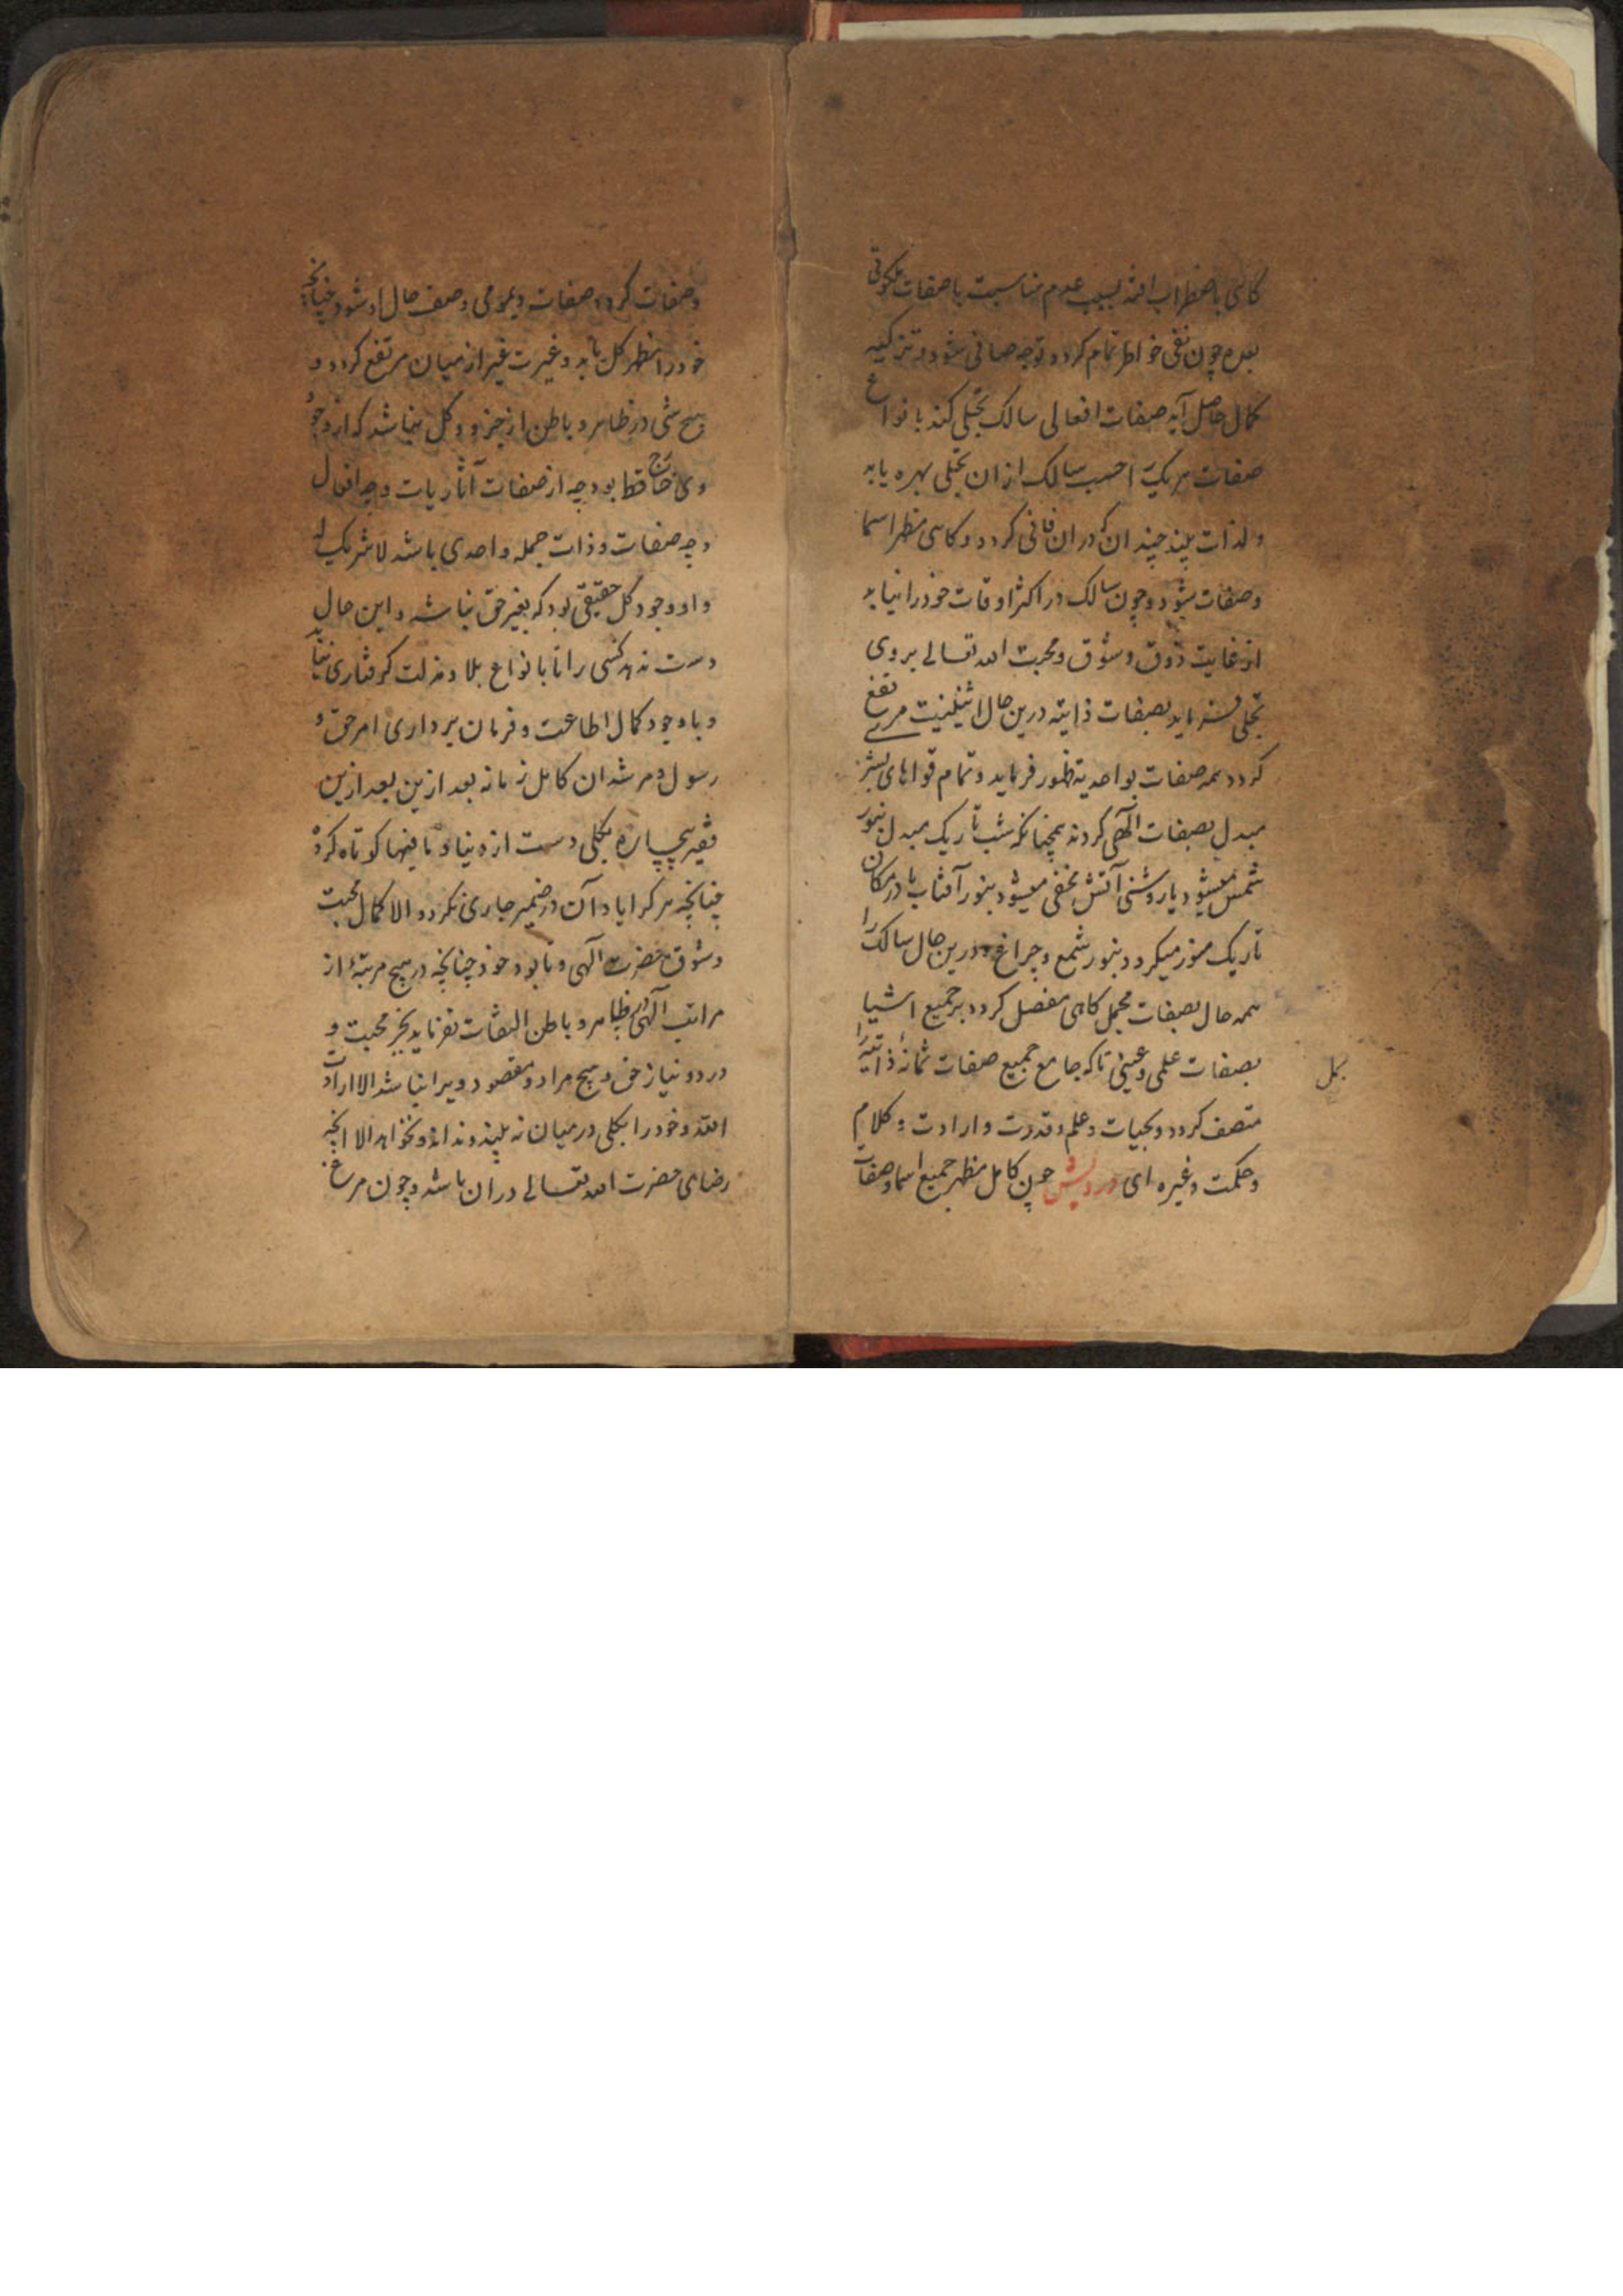 کاهی باضطراب افتد بسبب عدم مناسبت با صفات ملکوتی
بعده چون نفی خواطر تمام کردد و توجه صافی شود و تزکیه
کمال حاصل آید صفات افعالی سالک تجلی کند بانواع
صفات هر یک را حسب سالک ازان تجلی بهره یابد
ولذات بیند چندانکه دران فانی کردد و کاهی مظهر اسما
وصفات شود و چون سالک در اکثر اوقات خود را نیابد
از غایت ذوق و شوق و محبت الله تعالی بروی
تجلی فرماید بصفات ذاتیه درین حال اثنینیت مرتفع
کردد همه صفات بواحدیة ظهور فرماید و تمام قواهای بشر
مبدل بصفات الهی کردند همچنانکه شب تاریک مبدل بنور
شمس میشود یا روشنی آتش مخفی میشود بنور آفتاب یا در مکان
تاریک منور میکردد بنور شمع و چراغ و درین حال سالک را
همه حال بصفات مجمل کاهی مفصل کردد بر جمیع اشیا
بصفات علمی و عینی تا که جامع جمیع صفات ثمانهٔ ذاتیه را
متصف کردد و بحیات و علم و قدرت و ارادت و کلام
وحکمت وغیره ای درویش چون کامل مظهر جمیع اسما و صفات
وصفات کردد صفات ویومی وصف حال او شود چنانچه
خود را مظهر کل یابد و غیرت غیر از میان مرتفع کردد و
هیچ شی در ظاهر و باطن از جزو و کل نباشد که از وجود
وی خارج فقط بود چه از صفات آثاریات و چه افعال
وچه صفات و ذات جمله واحدی باشد لا شریک له
واو وجود کل حقیقی بود که بغیر حق نباشد و این حال
دست ندهد کسی را تا بانواع بلا و مذلت کرفتاری نیابد
وباوجود کمال اطاعت و فرمان برداری امر حق و
رسول و مرشدان کامل زمانه بعد ازین بعد ازین
فقیر بیچاره بکلی دست از دنیا و ما فیها کوتاه کرده
چنانچه هر کرا یاد آن در ضمیر جاری نکردد الا کمال محبت
وشوق حضرت الهی و نابود خود چنانچه در هیچ مرتبهٔ از
مراتب الهی در ظاهر و باطن التفات نفرماید بجز محبت و
درد و نیاز حق و هیچ مراد و مقصود ویرا نباشد الا ارادت
الله و خود را بکلی درمیان نه بیند و نداند و نخواهد الا انچه
رضای حضرت الله تعالی دران باشد و چون مرغ